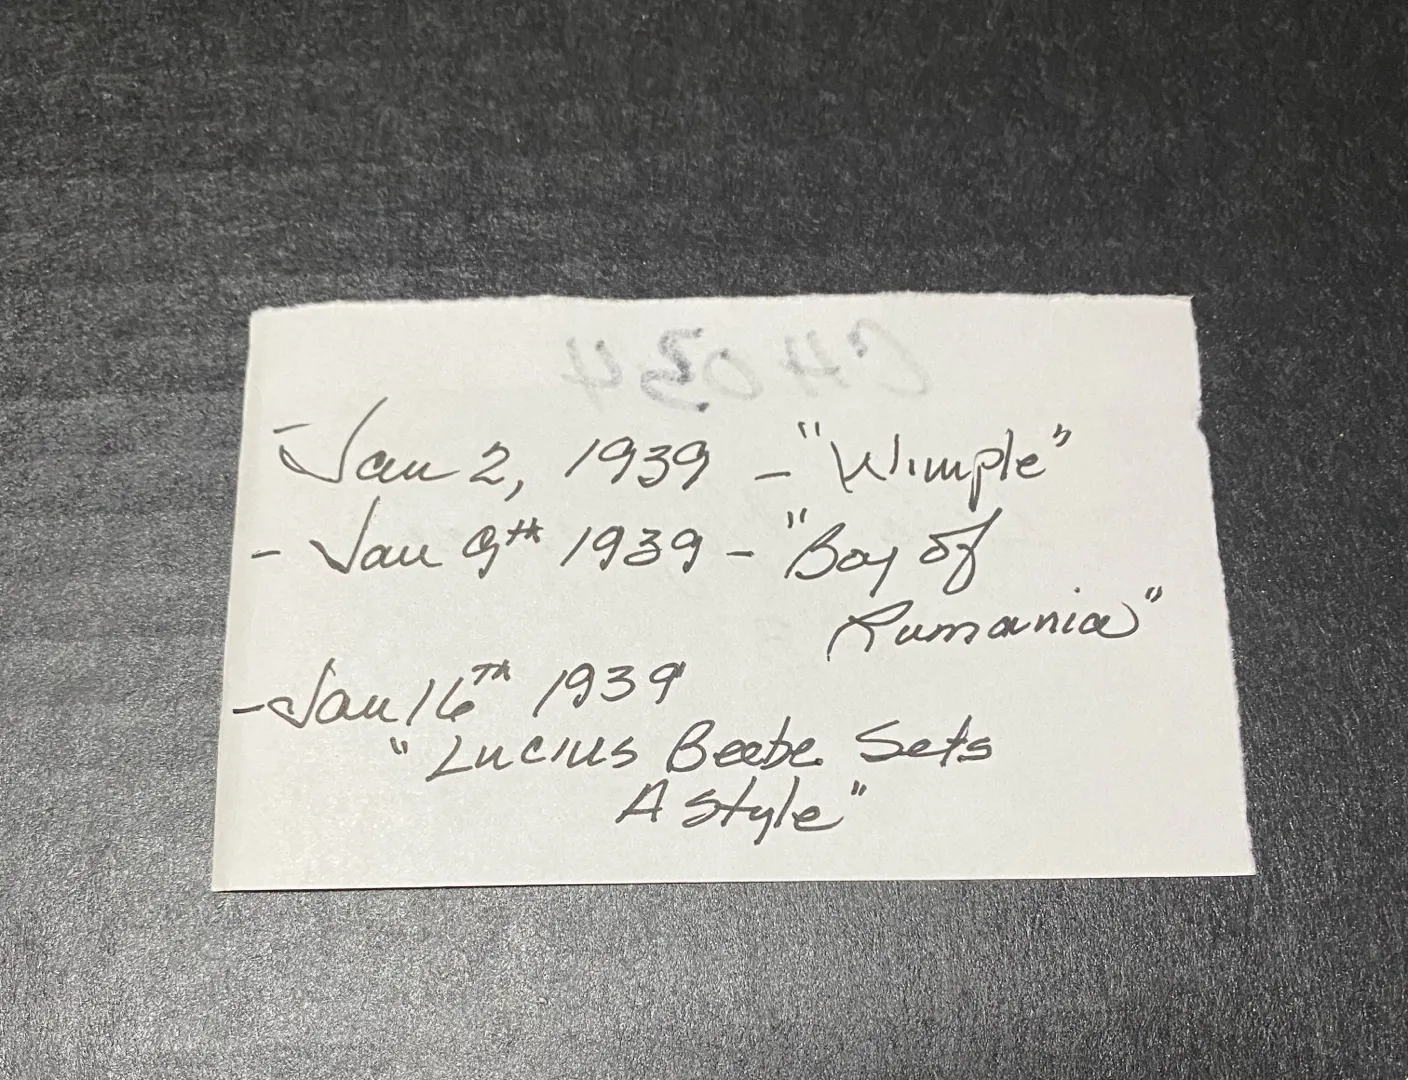 CH034
- Jan 2, 1939 - "Wimple"
- Jan 9th 1939 - "Boy of
Rumania"
- Jan 16TH 1939
"Lucius Beebe Sets
A Style"